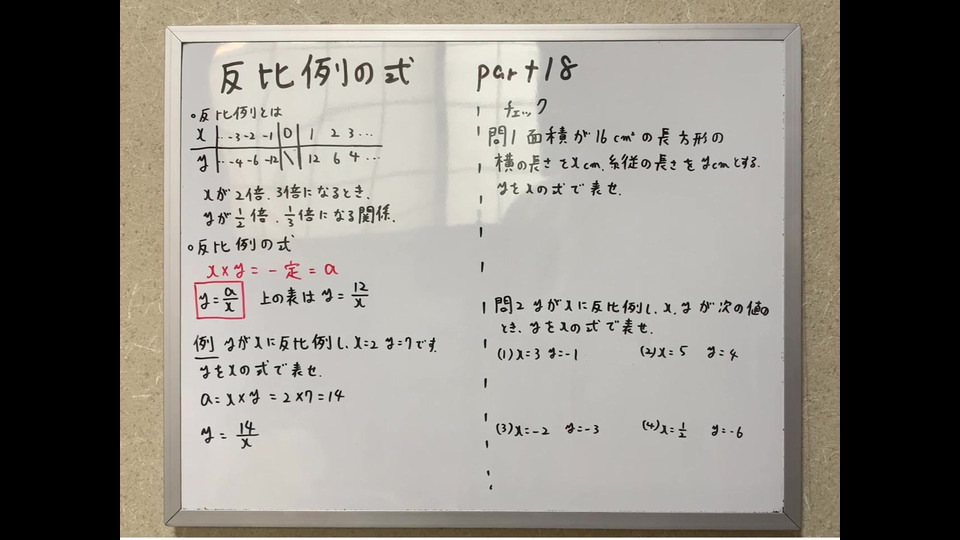 反比例の式 part18
○反比例とは
x ‥ -3 -2 -1 0 1 2 3 …
y ‥ -4 -6 -12 \ 12 6 4 …
xが2倍、3倍になるとき、
yが1/2倍、1/3倍になる関係。
○反比例の式
x×y=一定=a
y=a/x 上の表は y=12/x
例 yがxに反比例し、x=2 y=7です。
yをxの式で表せ。
a=x×y=2×7=14
y=14/x
チェック
問1 面積が16cm²の長方形の
横の長さをxcm、縦の長さをycmとする。
yをxの式で表せ。
問2 yがxに反比例し、x、yが次の値の
とき、yをxの式で表せ。
(1)x=3 y=-1 (2)x=5 y=4
(3)x=-2 y=-3 (4)x=1/2 y=-6